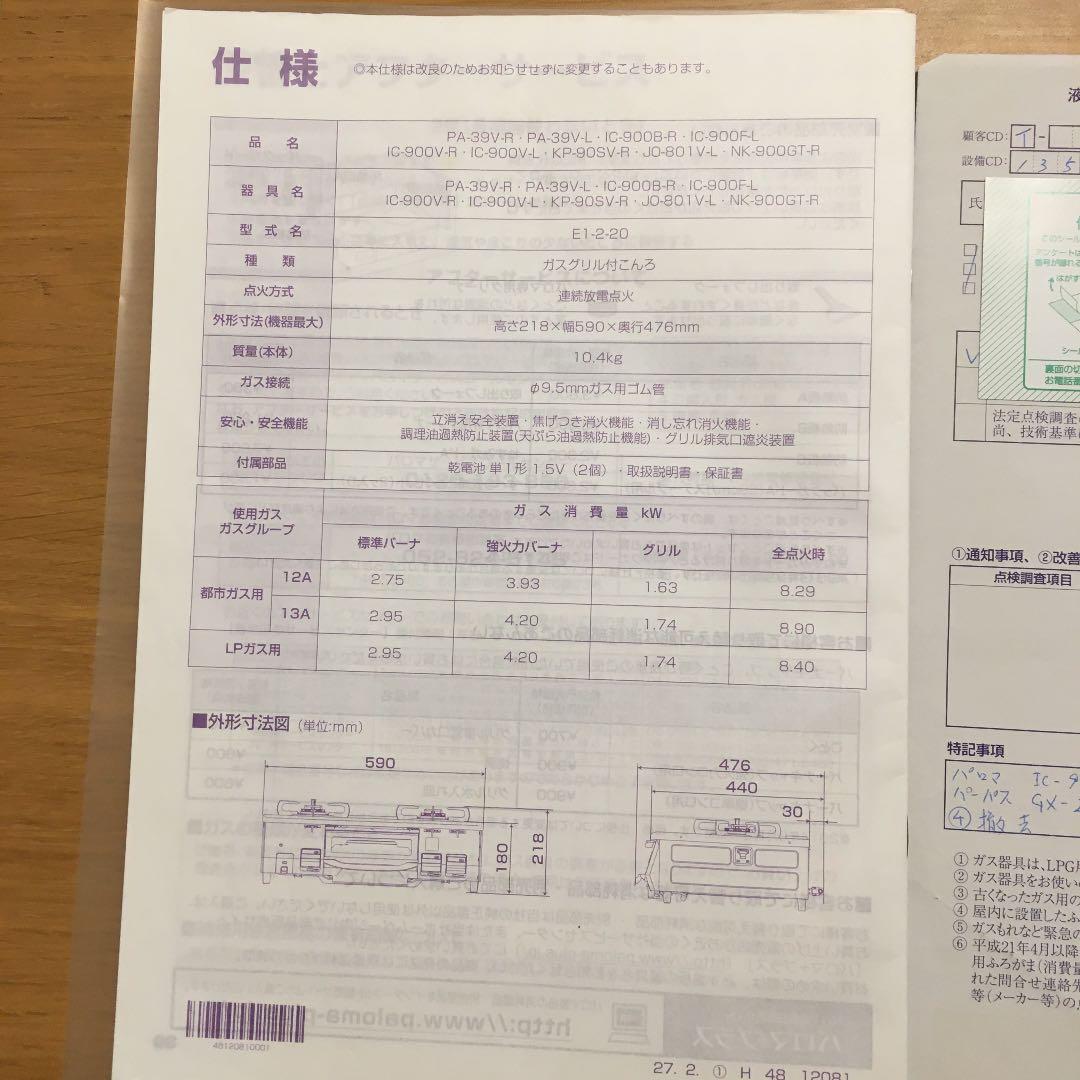 仕様
◎本仕様は改良のためお知らせせずに変更することもあります。
品名
PA-39V-R・PA-39V-L・IC-900B-R・IC-900F-L
IC-900V-R・IC-900V-L・KP-90SV-R・JO-801V-L・NK-900GT-R
器具名
PA-39V-R・PA-39V-L・IC-900B-R・IC-900F-L
IC-900V-R・IC-900V-L・KP-90SV-R・JO-801V-L・NK-900GT-R
型式名 E1-2-20
種類 ガスグリル付こんろ
点火方式 連続放電点火
外形寸法(機器最大) 高さ218×幅590×奥行476mm
質量(本体) 10.4kg
ガス接続 φ9.5mmガス用ゴム管
安心・安全機能
立消え安全装置・焦げつき消火機能・消し忘れ消火機能・
調理油過熱防止装置(天ぷら油過熱防止機能)・グリル排気口遮炎装置
付属部品 乾電池 単1形 1.5V(2個)・取扱説明書・保証書
使用ガス
ガスグループ
ガス消費量 kW
標準バーナ 強火力バーナ グリル 全点火時
都市ガス用
12A 2.75 3.93 1.63 8.29
13A 2.95 4.20 1.74 8.90
LPガス用 2.95 4.20 1.74 8.40
■外形寸法図(単位:mm)
590
180
218
476
440
30
48120810001
27. 2. ① H 48 12081
顧客CD: イ -
設備CD: 1 3 5
氏
このシール
アンケートは
番号が隠れる
はがす
シー
裏面の切
お電話番
法定点検調査
尚、技術基準に
①通知事項、②改善
点検調査項目
特記事項
パロマ IC-9
パーパス GX-2
④ 撤去
① ガス器具は、LPG用
② ガス器具をお使い
③ 古くなったガス用の
④ 屋内に設置したふ
⑤ ガスもれなど緊急の
⑥ 平成21年4月以降
用ふろがま(消費量
れた問合せ連絡先
等(メーカー等)の